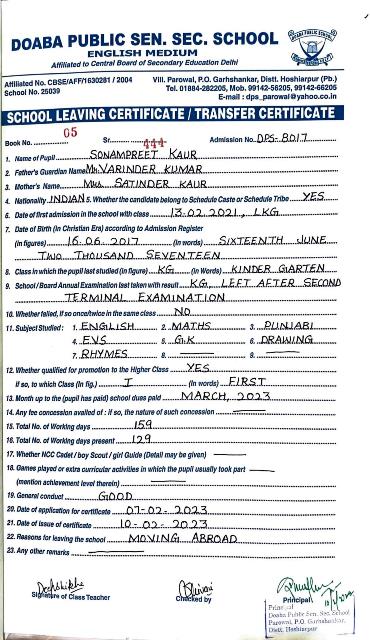 DOABA PUBLIC SEN. SEC. SCHOOL
ENGLISH MEDIUM
Affiliated to Central Board of Secondary Education Delhi
Affiliated No. CBSE/AFF/1630281 / 2004
School No. 25039
Vill. Parowal, P.O. Garhshankar, Distt. Hoshiarpur (Pb.)
Tel. 01884-282205, Mob. 99142-56205, 99142-66205
E-mail : dps_parowal@yahoo.co.in
SCHOOL LEAVING CERTIFICATE / TRANSFER CERTIFICATE
Book No. 05 Sr. 444 Admission No. DPS-8017
1. Name of Pupil SONAMPREET KAUR
2. Father's Guardian Name Mr. VARINDER KUMAR
3. Mother's Name Mrs. SATINDER KAUR
4. Nationality INDIAN 5. Whether the candidate belong to Schedule Caste or Schedule Tribe YES
6. Date of first admission in the school with class 13.02.2021, LKG
7. Date of Birth (in Christian Era) according to Admission Register
(in figures) 16.06.2017 (in words) SIXTEENTH JUNE
TWO THOUSAND SEVENTEEN
8. Class in which the pupil last studied (in figure) KG (in Words) KINDER GARTEN
9. School / Board Annual Examination last taken with result KG, LEFT AFTER SECOND
TERMINAL EXAMINATION
10. Whether failed, if so once/twice in the same class NO
11. Subject Studied : 1. ENGLISH 2. MATHS 3. PUNJABI
4. EVS 5. G.K 6. DRAWING
7. RHYMES 8. 9.
12. Whether qualified for promotion to the Higher Class YES
if so, to which Class (In fig.) I (In words) FIRST
13. Month up to the (pupil has paid) school dues paid MARCH, 2023
14. Any fee concession availed of : if so, the nature of such concession
15. Total No. of Working days 159
16. Total No. of Working days present 129
17. Whether NCC Cadet / boy Scout / girl Guide (Detail may be given)
18. Games played or extra curricular activities in which the pupil usually took part
(mention achievement level therein)
19. General conduct GOOD
20. Date of application of certificate 07-02-2023
21. Date of issue of certificate 10-02-2023
22. Reasons for leaving the school MOVING ABROAD
23. Any other remarks
Signature of Class Teacher Checked by Principal
Principal
Doaba Public Sen. Sec. School
Parowal, P.O. Garhshankar,
Distt. Hoshiarpur